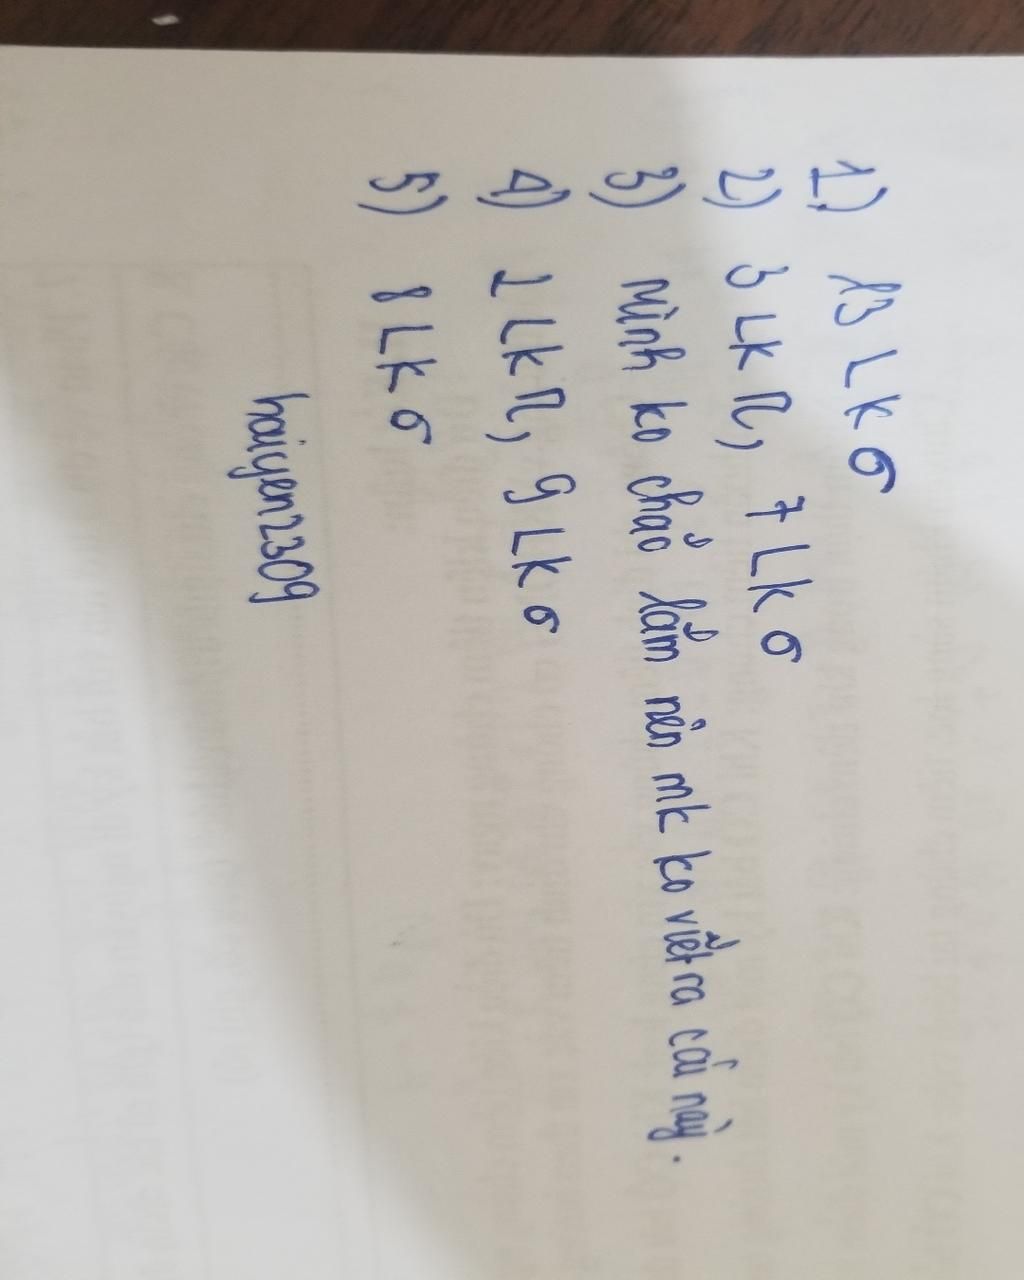 1) 13 Lk σ
2) 3 Lk π, 7 Lk σ
3) Mình ko chảo lắm nên mk ko viết ra cái này.
4) 1 Lk π, 9 Lk σ
5) 8 Lk σ
haiyen2309